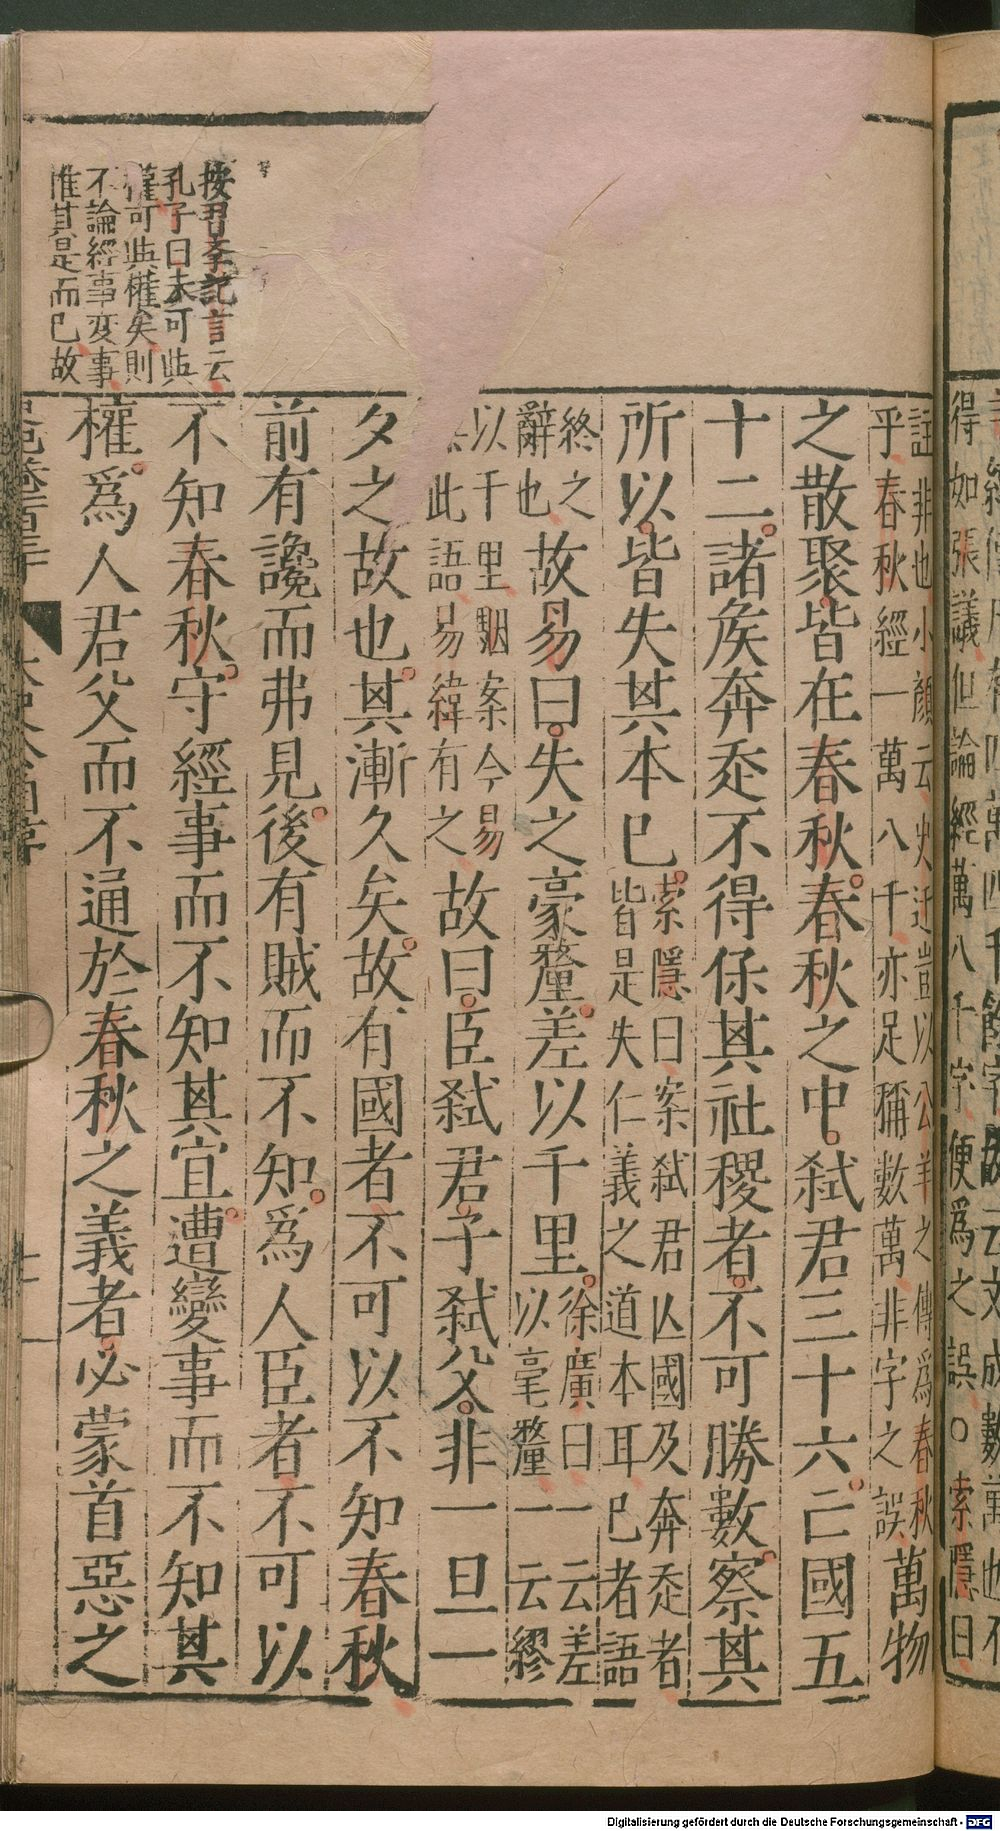 按君李記言云
孔子曰未可與
權可與權矣則
不論經事變事
惟其是而已故
得如張議但論經萬八千字便爲之誤○索隱曰
註非也小顏云史迁豈以公羊之傳爲春秋
乎春秋經一萬八千亦足稱數萬非字之誤
萬物
之散聚皆在春秋春秋之中弑君三十六亡國五
十二諸侯奔走不得保其社稷者不可勝數察其
所以皆失其本已
索隱曰案弑君亾國及奔走者
皆是失仁義之道本耳已者語
終之
辭也
故易曰失之豪釐差以千里
徐廣曰一云差
以毫釐一云繆
以千里駰案今易
無此語易緯有之
故曰臣弑君子弑父非一旦一
夕之故也其漸久矣故有國者不可以不知春秋
前有讒而弗見後有賊而不知爲人臣者不可以
不知春秋守經事而不知其宜遭變事而不知其
權爲人君父而不通於春秋之義者必蒙首惡之
Digitalisierung gefördert durch die Deutsche Forschungsgemeinschaft - DFG